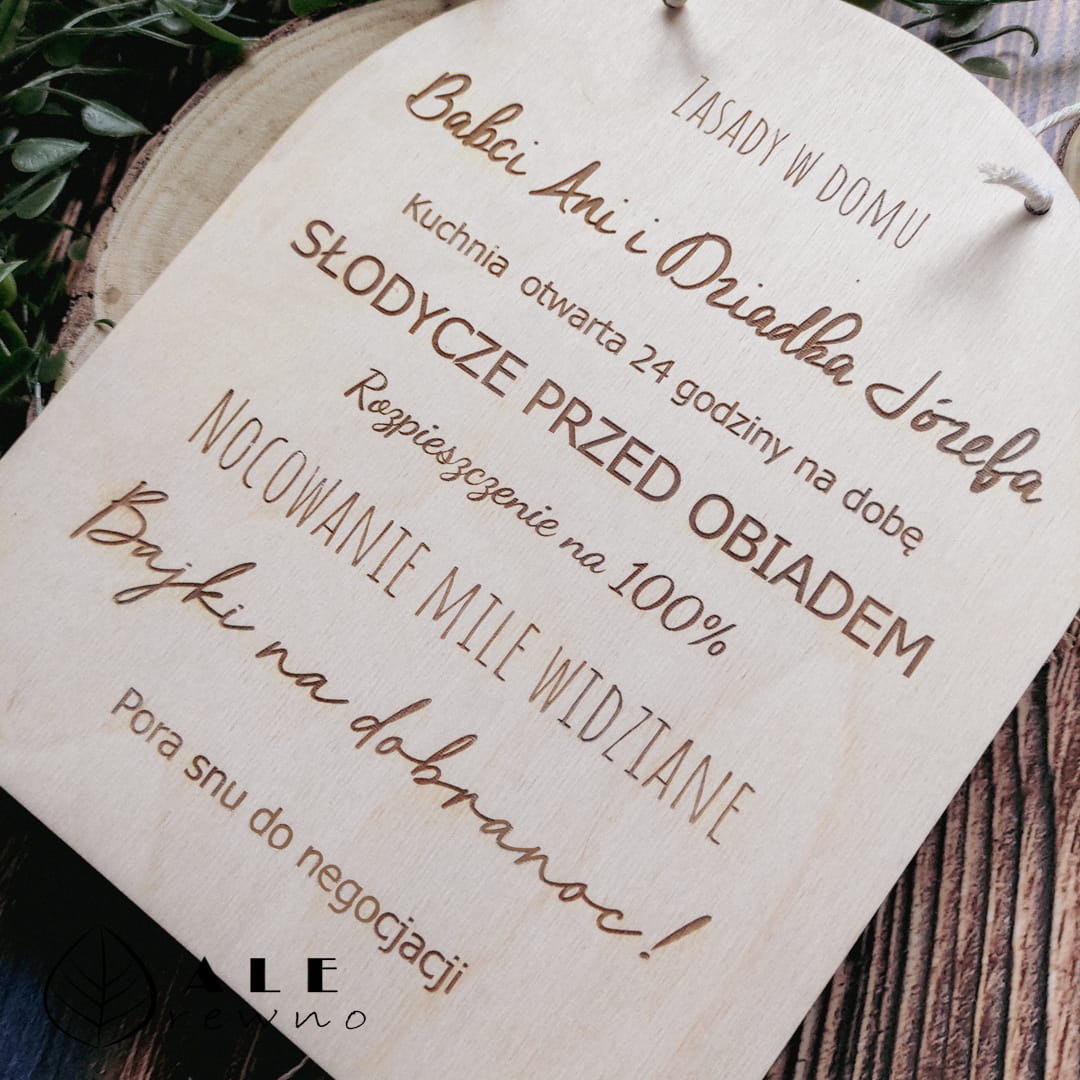 ZASADY W DOMU
Babci Ani i Dziadka Józefa
Kuchnia otwarta 24 godziny na dobę
SŁODYCZE PRZED OBIADEM
Rozpieszczenie na 100%
NOCOWANIE MILE WIDZIANE
Bajki na dobranoc!
Pora snu do negocjacji
ALE
rewno